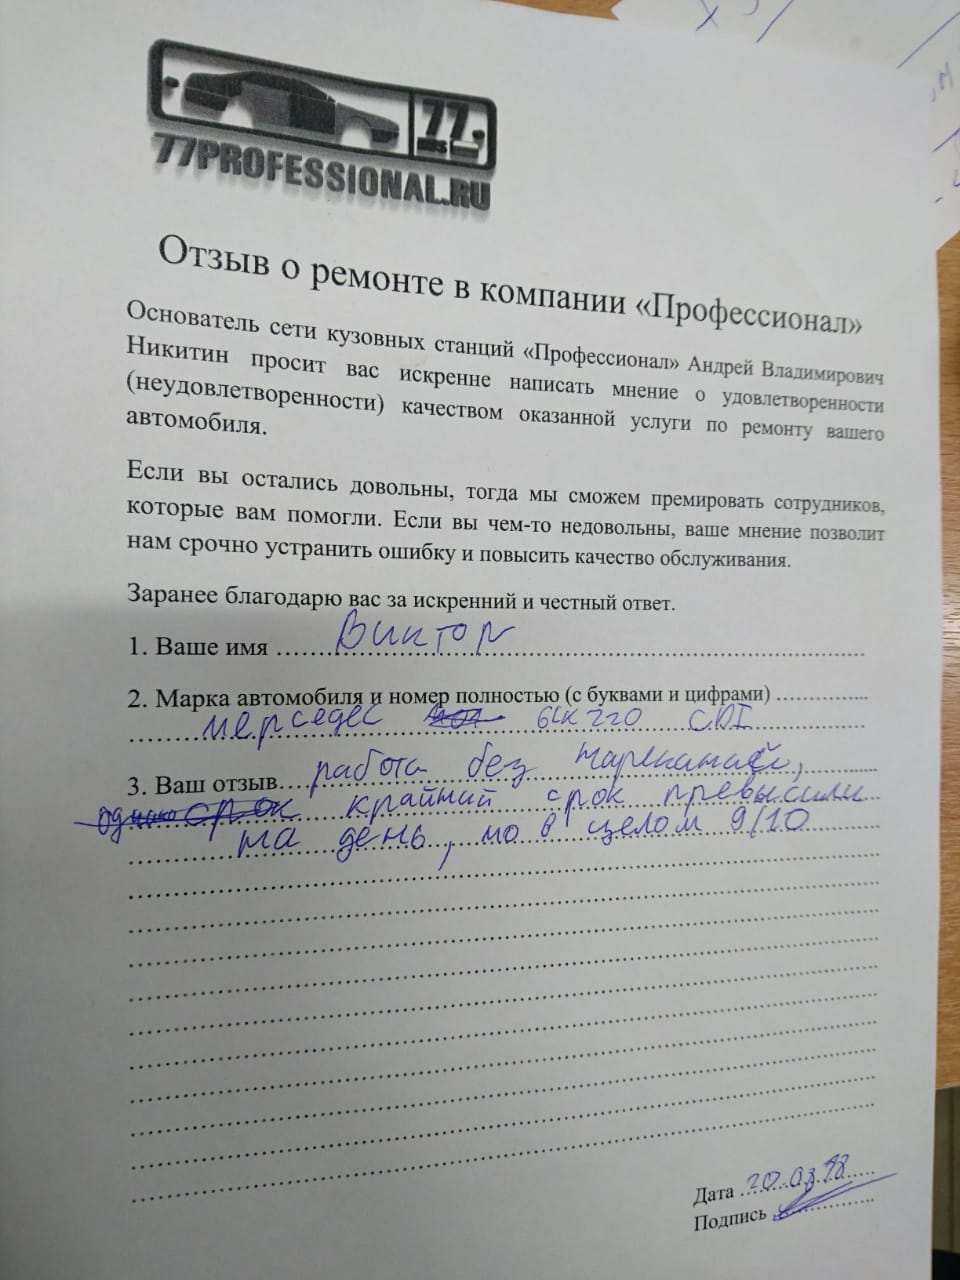 77
77PROFESSIONAL.RU
Отзыв о ремонте в компании «Профессионал»
Основатель сети кузовных станций «Профессионал» Андрей Владимирович
Никитин просит вас искренне написать мнение о удовлетворенности
(неудовлетворенности) качеством оказанной услуги по ремонту вашего
автомобиля.
Если вы остались довольны, тогда мы сможем премировать сотрудников,
которые вам помогли. Если вы чем-то недовольны, ваше мнение позволит
нам срочно устранить ошибку и повысить качество обслуживания.
Заранее благодарю вас за искренний и честный ответ.
1. Ваше имя Виктор
2. Марка автомобиля и номер полностью (с буквами и цифрами)
мерседес GLK 220 CDI
3. Ваш отзыв работа без нареканий,
крайний срок превысили
на день, но в целом 9/10
Дата 20.03.18
Подпись